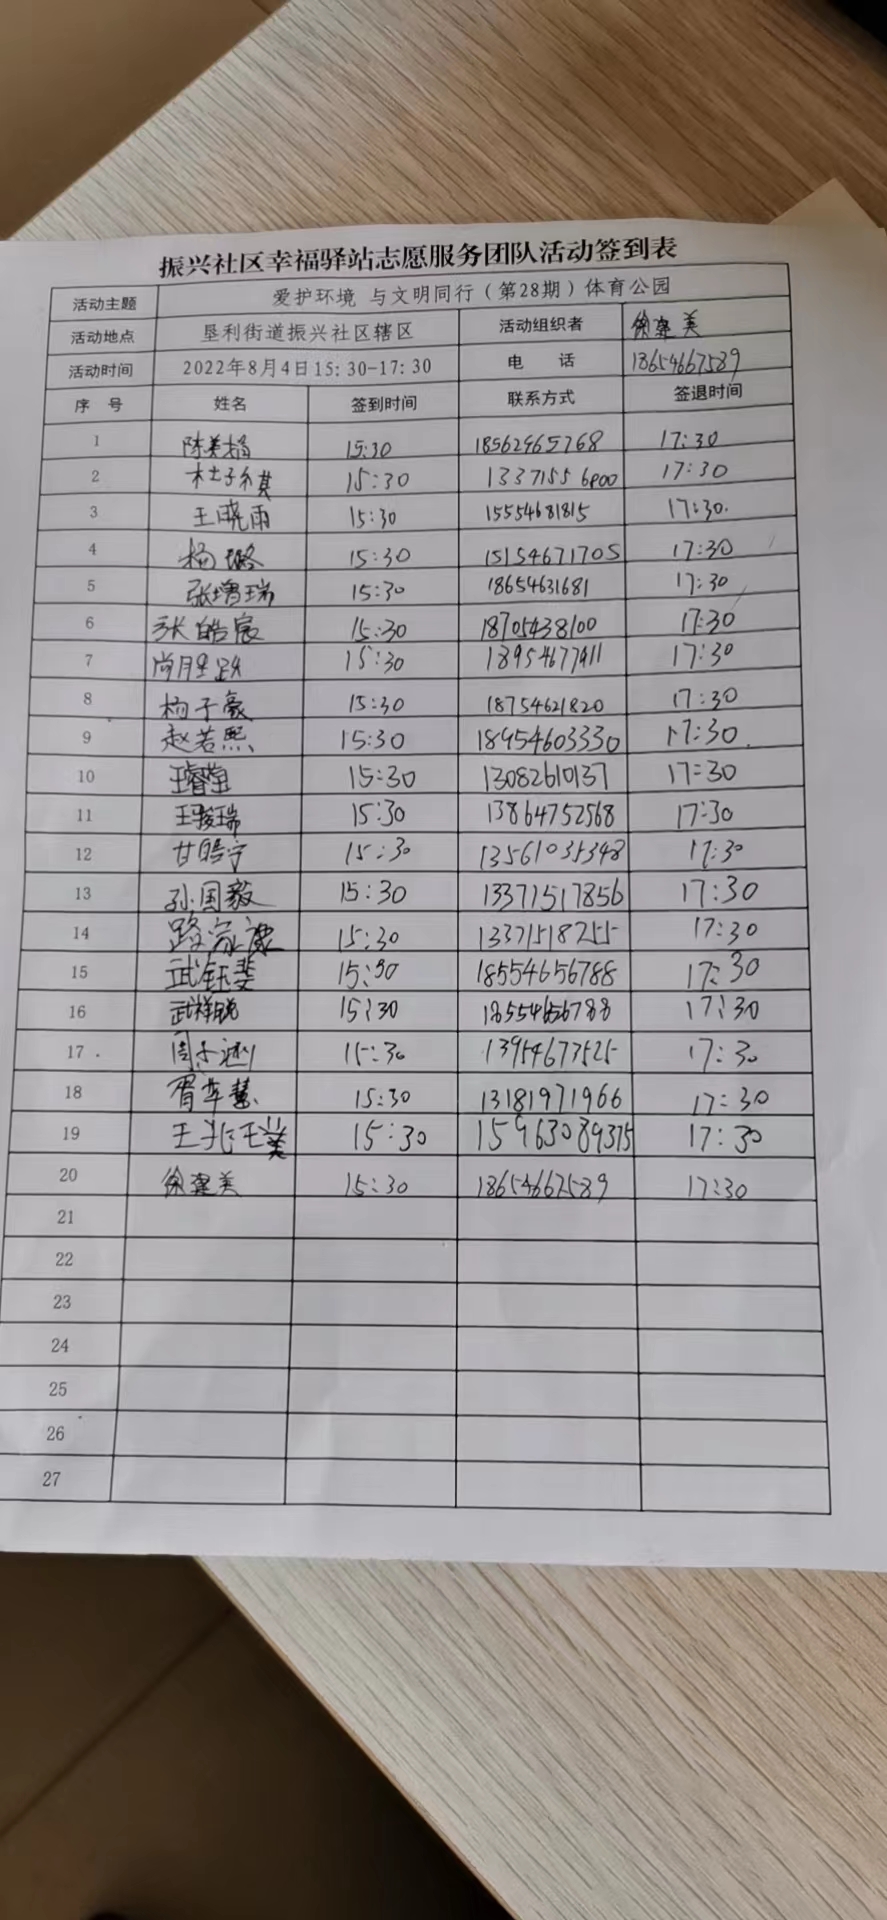 振兴社区幸福驿站志愿服务团队活动签到表
活动主题 爱护环境 与文明同行（第28期）体育公园
活动地点 垦利街道振兴社区辖区 活动组织者 徐建美
活动时间 2022年8月4日15:30-17:30 电 话 18654667589
序 号 姓名 签到时间 联系方式 签退时间
1 陈美娟 15:30 18562965768 17:30
2 杜子祺 15:30 17:30
3 王晓雨 15:30 15554681815 17:30.
4 杨璐 15:30 15154671705 17:30
5 张增瑞 15:30 18654631681 17:30
6 张皓宸 15:30 18705438100 17:30
7 尚月星跃 15:30 17:30
8 杨子豪 15:30 18754621820 17:30
9 赵若熙 15:30 18954603330 17:30.
10 王睿莹 15:30 13082610137 17:30
11 王骏瑞 15:30 13864752568 17:30
12 甘皓宁 15:30 13561035348 17:30
13 孙国毅 15:30 13371517856 17:30
14 路家康 15:30 13371518255 17:30
15 武钰斐 15:30 18554656788 17:30
16 15:30 18554656788 17:30
17 周子涵 15:30 13954677525 17:30
18 胥苹慧 15:30 13181971966 17:30
19 王兆美 15:30 15963089375 17:30
20 徐建美 15:30 18654667589 17:30
21
22
23
24
25
26
27